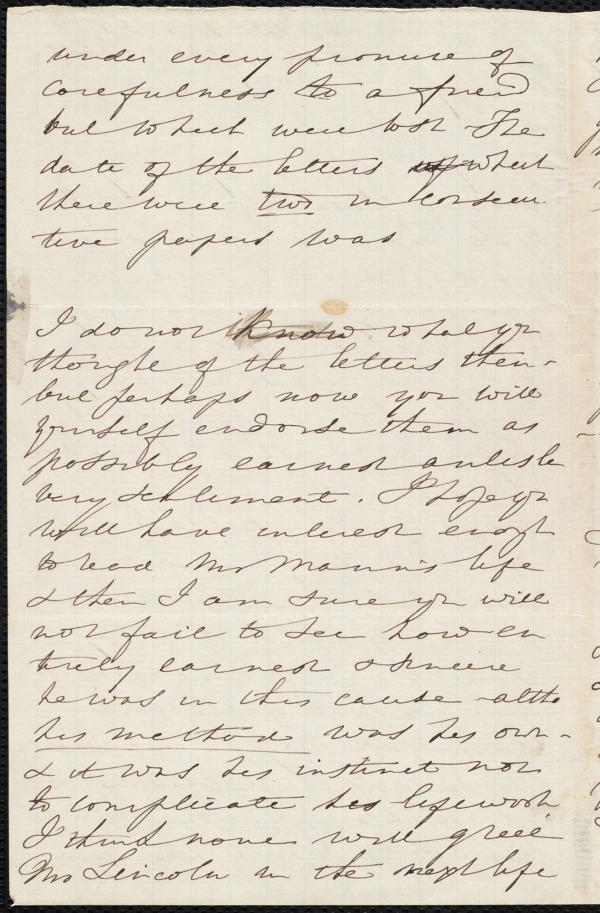 under every promise of
carefulness to a friend
but what were lost - The
date of the letters of what
there were two in consecu
tive papers was
I do not know what you
thought of the letters then -
but perhaps now you will
yourself endorse them as
possibly earnest antisla
very sentiment. I hope you
will have interest enough
to read Mr Mann's life
& then I am sure you will
not fail to see how en
tirely earnest & sincere
he was in this cause - altho
his method was his own -
& it was his instinct not
to complicate his lifework
I think none will greet
Mr Lincoln in the next life